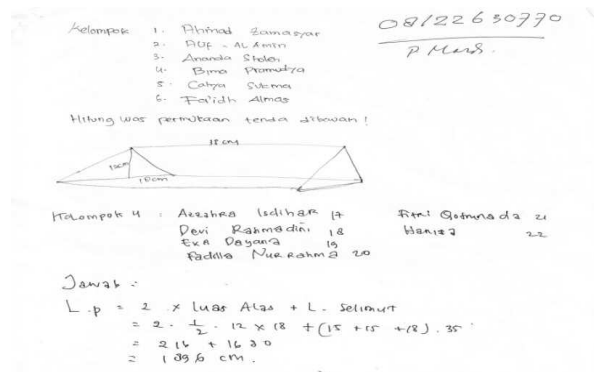 Kelompok 1. Ahmad Zamasyar
2. Alif - AL Amin
3. Ananda Sholeh
4. Bima Pramudya
5. Cahya Sukma
6. Faidh Almas
08122630770
P Mards.
Hitung luas permukaan tenda dibawah!
18 cm
12cm
18cm
Kelompok 4 : Azzahra Isdihar 17
Devi Rahmadini 18
Exa Dayana 19
Fadilla Nur Rahma 20
Fitri Qotrunada 21
Hanifa 22
Jawab :
L.p = 2 x luas Alas + L. Selimut
= 2 . 1/2 . 12 x 18 + (15 + 15 + 18) . 35
= 216 + 1680
= 1896 cm.